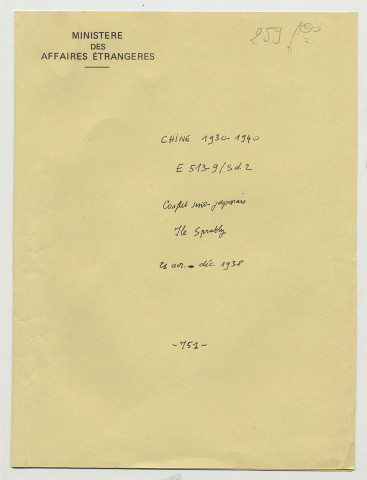 259 fos
MINISTERE
DES
AFFAIRES ÉTRANGERES
CHINE 1930-1940
E 513-9/Sd.2
Conflit sino-japonais
Ile Spratly
21 avr. - déc. 1938
- 751 -